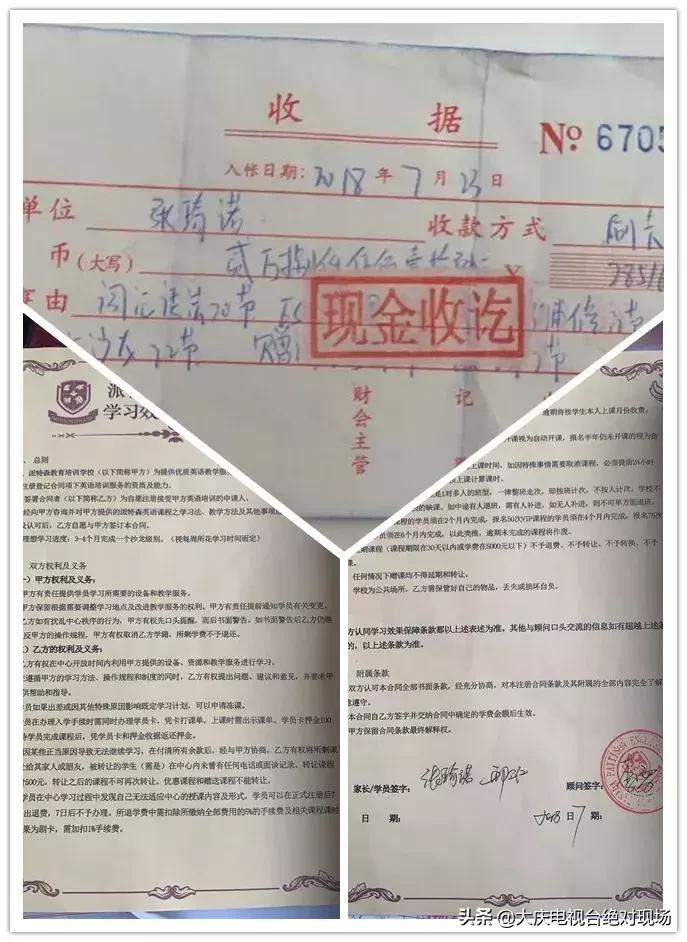 收 据
№ 6705
入帐日期：2018 年 7 月 23 日
单位 张琦诺 收款方式 刷卡
币(大写) 贰万捌仟伍佰壹拾
由 词汇语法70节
现金收讫
沙龙72节 赠
财会主管
记
派
学习效
、总则
派特森教育培训学校（以下简称甲方）为提供优质英语教学服
注册登记合同项下英语培训服务的资质及能力。
签署合同者（以下简称乙方）为自愿注册接受甲方英语培训的申请人。
经向甲方咨询并对甲方提供的派特森英语课程之学习法、教学方法及其他事项
及认可后，乙方自愿与甲方签订本合同。
理想学习进度：3-4个月完成一个沙龙级别。（视每周所花学习时间而定）
双方权利及义务
一）甲方权利及义务：
甲方有责任提供学员学习所需要的设备和教学服务。
甲方保留根据需要调整学习地点及改进教学服务的权利。甲方有责任提前通知学员有关变更。
乙方如有扰乱中心秩序的行为，甲方有权先口头提醒，而后书面警告。如书面警告后乙方仍继
反甲方的操作规程，甲方有权取消乙方学籍，所剩学费不予退还。
）乙方的权利及义务：
乙方有权在中心开放时间内利用甲方提供的设备、资源和教学服务进行学习。
在遵循甲方的学习方法、操作规程和制度的同时，乙方有权提出问题、建议和意见，并要求甲
供帮助和指导。
学员如果出差或因其他特殊原因影响既定学习计划，可以申请冻课。
学员在办理入学手续时需同时办理学员卡，凭卡打课单，上课时需出示课单。学员卡押金100
待学员完成课程后，凭学员卡和押金收据返还押金。
因某些正当原因导致无法继续学习，在付清所有余款后，经与甲方协商，乙方有权将所剩课
让给其家人或朋友，被转让的学生（需是）在中心内未曾有任何电话或面谈记录。转让课程
500元，转让之后的课程不可再次转让，优惠课程和赠送课程不能转让。
学员在中心学习过程中发现自己无法适应中心的授课内容及形式，学员可以在正式注册后7
出退费，7日后不予办理。所退学费中需扣除所缴纳全部费用的6%的手续费及相关课程课时
果为刷卡，需加扣1%手续费。
逾期将按学生本人上课月份收费。
开课视为自动开课，报名半年仍未开课的视为自
上课时间，如因特殊情需要取消课程，必须提前24小时
按上课计算课时。
是1对多人的班型，一律整班走次，即按班计次，不按人计次，学校不
的缺课。如中途有人退班，需有人补进，如无人补进，则不可单方面退班。
课程的学员须在2个月内完成，报名50次VIP课程的学员须在4个月内完成。报名75次
员须在6个月内完成，以此类推，逾期未完成的课程将作废。
期课程（课程期限在30天以内或学费在5000元以下）不予退费、不予转让、不予转换、不予
课。
任何情况下赠课均不得延期和转让。
学校为公共场所，乙方需保管好自己的物品，丢失或损坏自负。
方认同学习效果保障条款都以上述表述为准。其他与顾问口头交流的信息如有超越上述条
的，以上述条款为准。
附属条款
双方认可本合同全部书面条款，经充分协商，对本注册合同条款及其附属的全部内容完全了解
意遵守。
本合同自乙方签字并交纳合同中确定的学费金额后生效。
甲方保留合同条款最终解释权。
家长/学员签字： 张琦诺 顾问签字：
PATTISON ENGL
日 期： 2018年7 期：
头条 @大庆电视台绝对现场